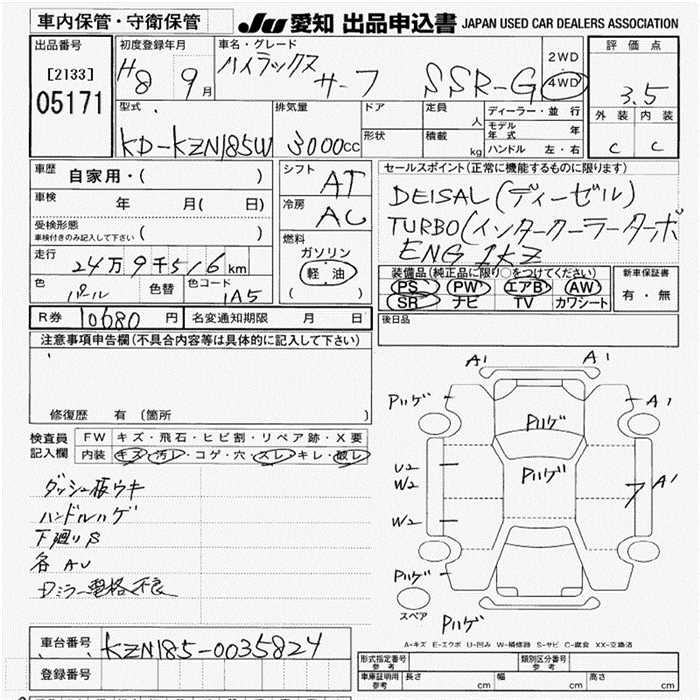 車内保管・守衛保管
JU 愛知 出品申込書 JAPAN USED CAR DEALERS ASSOCIATION
出品番号
[2133]
05171
初度登録年月
H8 9月
車名・グレード
ハイラックスサーフ SSR-G
2WD
4WD
評価点
3.5
外装 内装
C C
型式
KD-KZN185W
排気量
3000cc
ドア
形状
定員
人
積載
kg
ディーラー・並行
モデル年式 年
ハンドル 左・右
車歴
自家用・( )
車検
年 月( 日)
受検形態
車検付きのみ記入して下さい ( )
走行
24万9千516km
色
パール
色替
色コード
1A5
シフト
AT
冷房
AC
燃料
ガソリン
軽油
( )
セールスポイント(正常に機能するものに限ります)
DEISAL(ディーゼル)
TURBO(インタークーラーターボ
ENG 1KZ
装備品(純正品に限り○をつけてください)
PS PW エアB AW
SR ナビ TV カワシート
新車保証書
有・無
R券 10680円
名変通知期限 月 日
後日品
注意事項申告欄(不具合内容等は具体的に記入して下さい)
修復歴 有(箇所
検査員記入欄
FW キズ・飛石・ヒビ割・リペア跡・X要
内装 キズ・汚レ・コゲ・穴・スレ・キレ・破レ
ダッシュ板ウキ
ハンドルハゲ
下廻りS
各AU
Dミラー電格不良
A1
A1
Pハゲ
A1
Pハゲ
Pハゲ
U2
W2
A1
W2
Pハゲ
スペア
Pハゲ
A-キズ E-エクボ U-凹み W-補修跡 S-サビ C-腐食 XX-交換済
車台番号
KZN185-0035824
登録番号
形式指定番号 参考
類別区分番号 参考
車庫証明用 参考
長さ cm
幅 cm
高さ cm